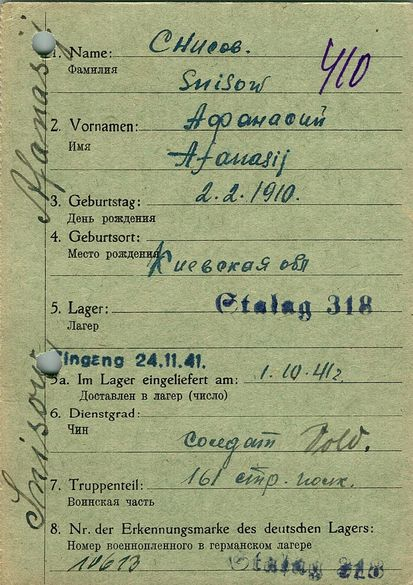 1. Name: Снисов.
Фамилия
Snisow
410
2. Vornamen: Афанасий
Имя
Afanasij
3. Geburtstag: 2.2.1910.
День рождения
4. Geburtsort:
Место рождения Киевская обл
5. Lager: Stalag 318
Лагерь
Eingang 24.11.41.
5a. Im Lager eingeliefert am: 1.10.41г.
Доставлен в лагерь (число)
6. Dienstgrad:
Чин солдат Sold.
7. Truppenteil: 161 стр. полк.
Воинская часть
8. Nr. der Erkennungsmarke des deutschen Lagers:
Номер военнопленного в германском лагере
10613 Stalag 318
Snisow Afanasij